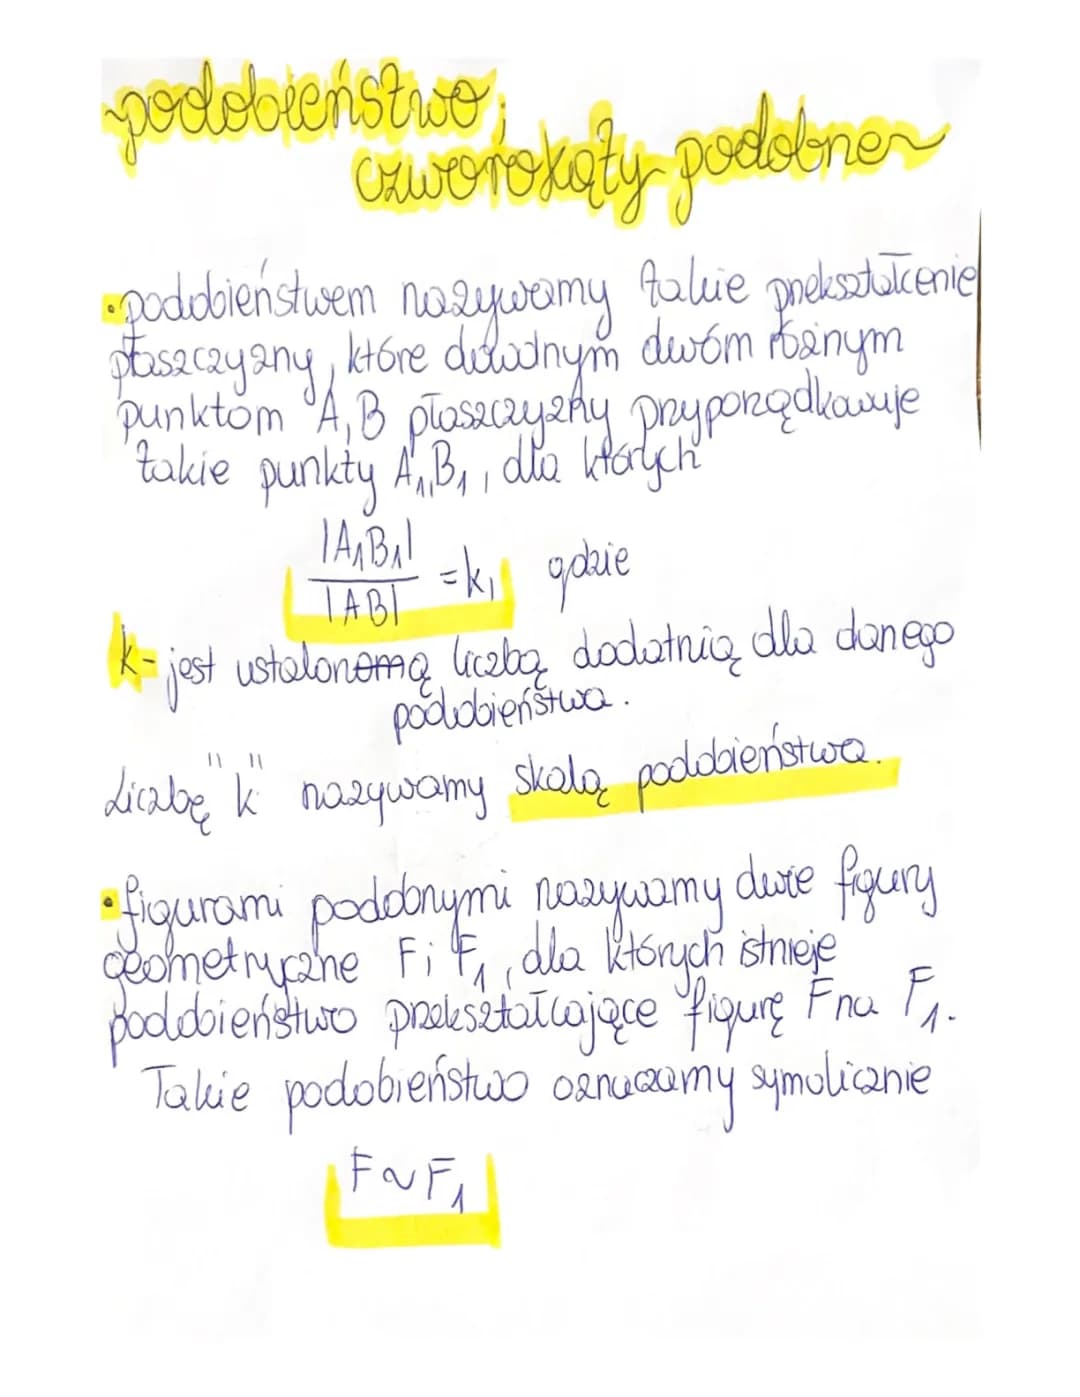 podobieństwo,
czworokąty podobne
• podobieństwem nazywamy takie przekształcenie
płaszczyzny, które dowolnym dwóm różnym
punktom A, B płaszczyzny przyporządkowuje
takie punkty A₁, B₁, dla których
|A₁B₁|
/|AB| = k, gdzie
k - jest ustaloną liczbą dodatnią dla danego
podobieństwa.
Liczbę "k" nazywamy skalą podobieństwa.
• figurami podobnymi nazywamy dwie figury
geometryczne F i F₁, dla których istnieje
podobieństwo przekształcające figurę F na F₁.
Takie podobieństwo oznaczamy symolicznie
F ~ F₁